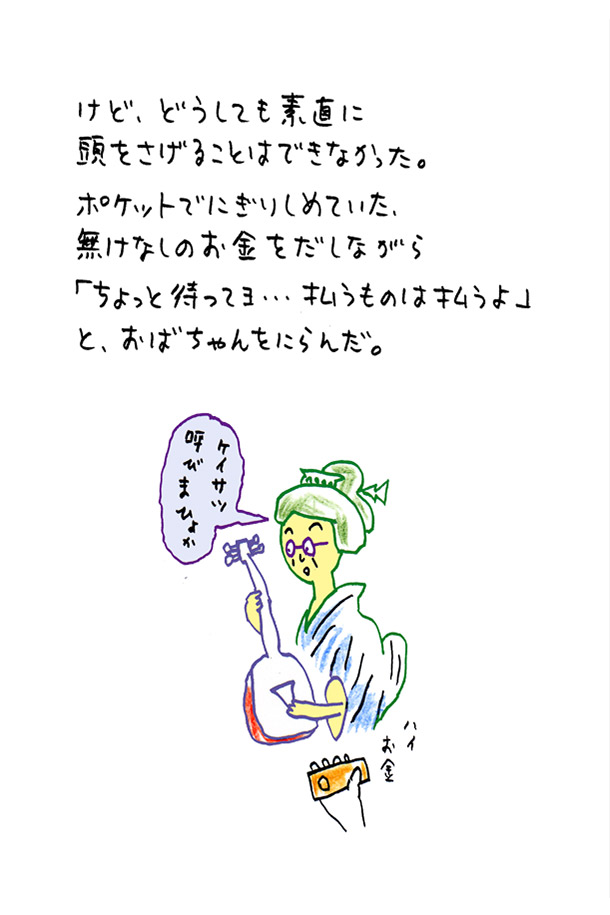 けど、どうしても素直に
頭をさげることはできなかった。
ポケットでにぎりしめていた、
無けなしのお金をだしながら
「ちょっと待ってヨ…払うものは払うよ」
と、おばちゃんをにらんだ。
ケイサツ
呼びまひょか
ハイ
お金